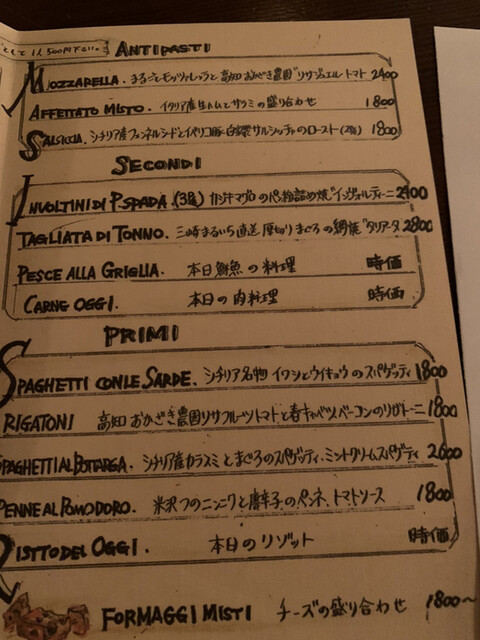 として1人500円下さい。
ANTIPASTI
MOZZARELLA. まるごとモッツァレッラと高知おかざき農園"リサジュエルトマト 2400
AFFETTATO MISTO. イタリア産生ハムとサラミの盛り合わせ 1800
SALSICCIA. シチリア産フェンネルシードとイベリコ豚 自家製サルシッチャのロースト(2本) 1800
SECONDI
INVOLTINI DI P.SPADA. (3名) カジキマグロのパン粉詰め焼"インヴォルティーニ 2400
TAGLIATA DI TONNO. 三崎まるいち直送 厚切りまぐろの網焼"タリアータ 2800
PESCE ALLA GRIGLIA. 本日鮮魚の料理 時価
CARNE OGGI. 本日の肉料理 時価
PRIMI
SPAGHETTI CON LE SARDE. シチリア名物 イワシとウイキョウのスパゲッティ 1800
RIGATONI 高知おかざき農園リサフルーツトマトと春キャベツ、ベーコンのリガトーニ 1800
SPAGHETTI AL BOTTARGA. シチリア産カラスミとまぐろのスパゲッティ、ミントクリームスパゲティ 2600
PENNE AL POMODORO. 米沢 つのニンニクと唐辛子のペンネ、トマトソース 1800
RISTTO DEL OGGI. 本日のリゾット 時価
FORMAGGI MISTI チーズの盛り合わせ 1800〜